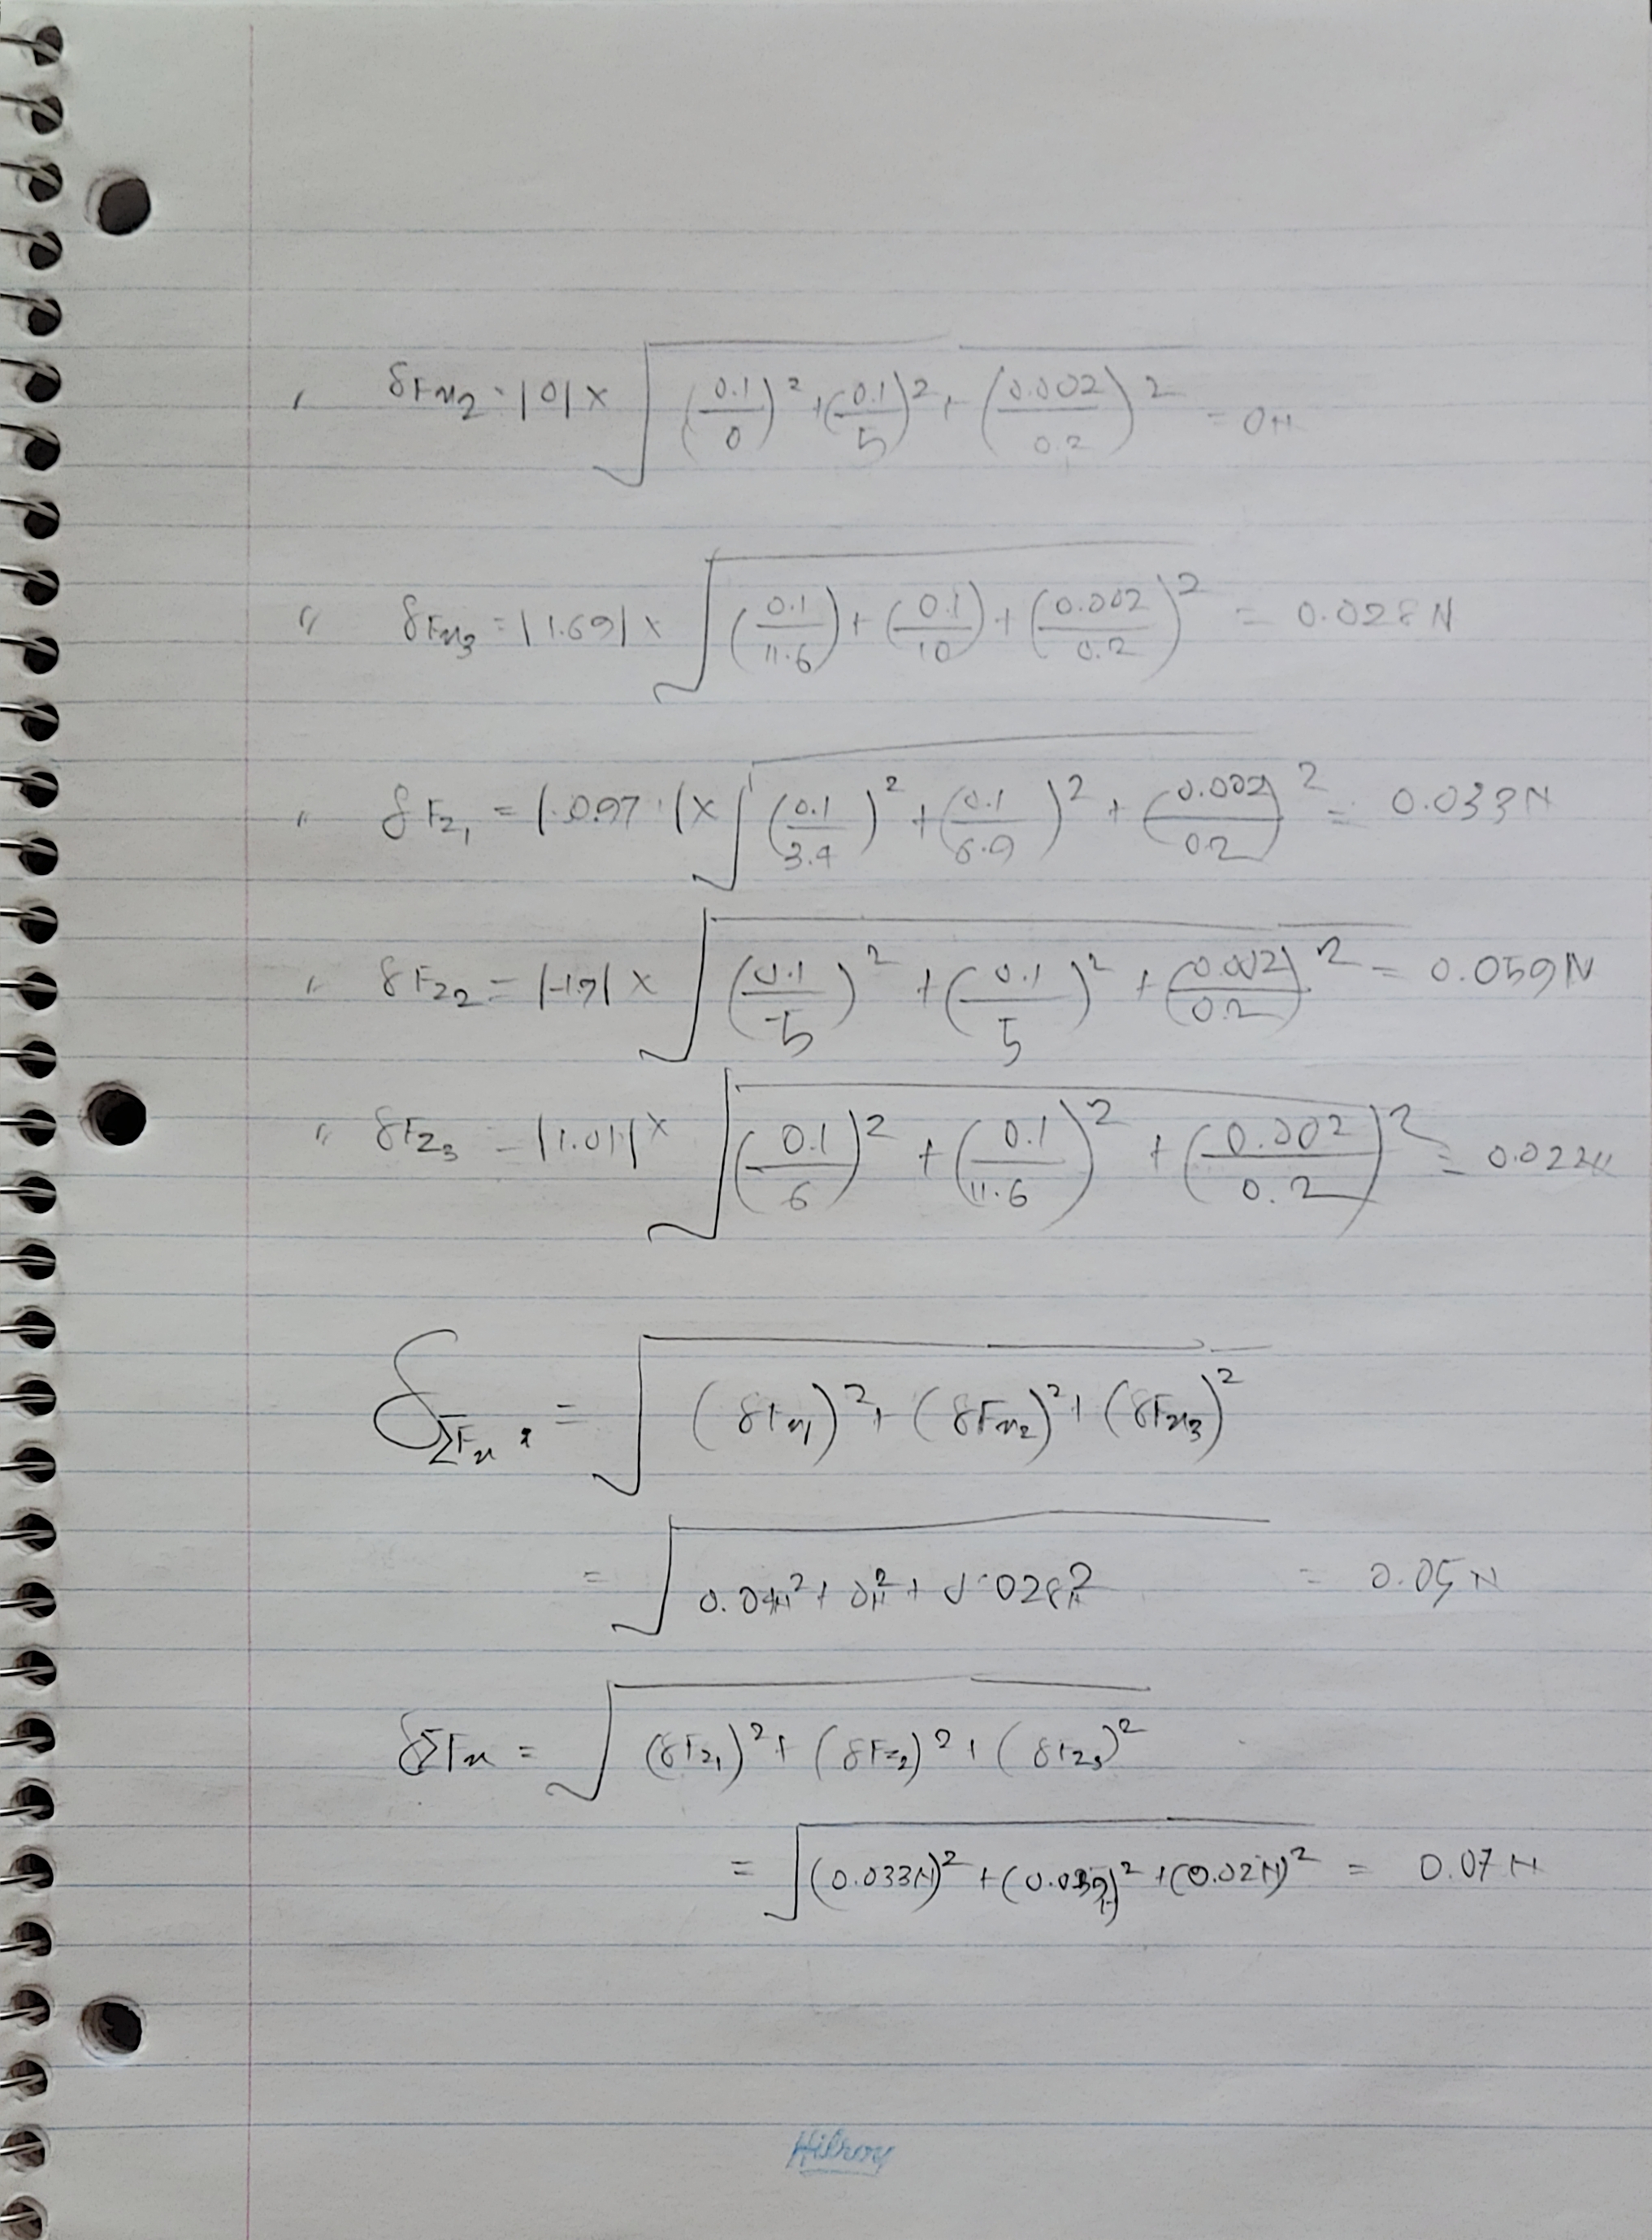 " δFx₂ = |0| × √((0.1/0)² + (0.1/5)² + (0.002/0.2)²) = 0N
" δFx₃ = |1.69| × √((0.1/11.6) + (0.1/10) + (0.002/0.2)²) = 0.028N
" δFz₁ = |-0.97| × √((0.1/3.4)² + (0.1/6.9)² + (0.002/0.2)² = 0.033N
" δFz₂ = |-1.9| × √((0.1/5)² + (0.1/5)² + (0.002/0.2)² = 0.059N
" δFz₃ = |1.01| × √((0.1/6)² + (0.1/11.6)² + (0.002/0.2)² = 0.022N
δΣFx = √((δFx₁)² + (δFx₂)² + (δFx₃)²
= √(0.04N² + 0N² + 0.028N²) = 0.05N
δΣFx = √((δFz₁)² + (δFz₂)² + (δFz₃)²
= √((0.033N)² + (0.059N)² + (0.02N)² = 0.07N
Hilroy